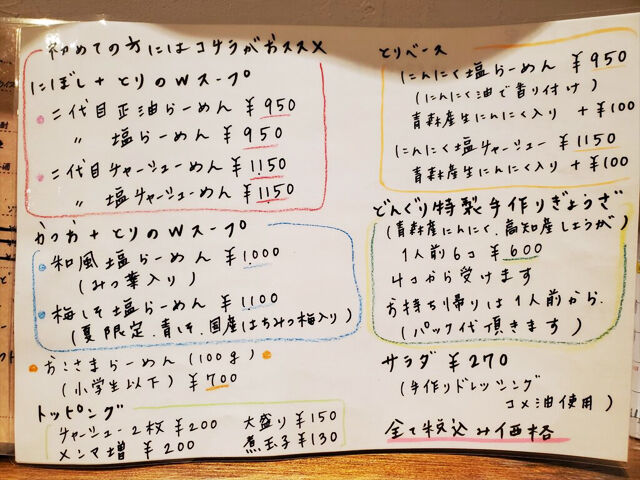 初めての方にはコチラがおススメ
にぼし+とりのWスープ
二代目正油らーめん ¥950
〃 塩らーめん ¥950
二代目チャーシューめん ¥1150
〃 塩チャーシューめん ¥1150
かつお+とりのWスープ
和風塩らーめん ¥1,000
(みつ葉入り)
梅しそ塩らーめん ¥1100
(夏限定、青しそ、国産はちみつ梅入り)
おこさまらーめん(100g)
(小学生以下) ¥700
トッピング
チャーシュー2枚 ¥200 大盛り ¥150
メンマ増 ¥200 煮玉子 ¥130
とりベース
にんにく塩らーめん ¥950
(にんにく油で香り付け)
青森産生にんにく入り +¥100
にんにく塩チャーシュー ¥1150
青森産生にんにく入り +¥100
どんぐり特製手作りぎょうざ
(青森産にんにく、高知産しょうが)
1人前6コ ¥600
4コから受けます
お持ち帰りは1人前から
(パック代頂きます)
サラダ ¥270
(手作りドレッシング
コメ油使用)
全て税込み価格